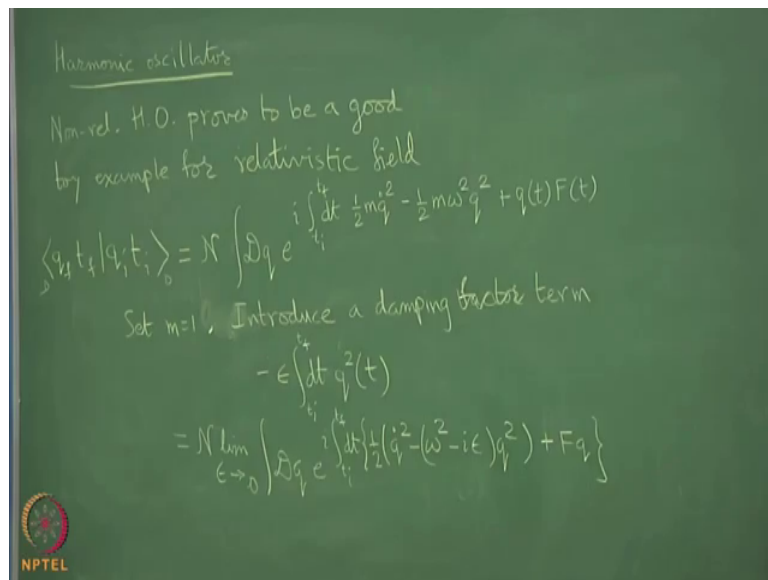 Harmonic oscillator
Non-rel. H.O. proves to be a good
toy example for relativistic field
⟨q_f t_f | q_i t_i⟩_0 = N ∫ 𝒟q e^{i ∫_{t_i}^{t_f} dt ½ m q̇² − ½ m ω² q² + q(t) F(t)}
Set m=1. Introduce a damping factor term
− ε ∫_{t_i}^{t_f} dt q²(t)
= N lim_{ε→0} ∫ 𝒟q e^{i ∫_{t_i}^{t_f} dt {½ (q̇² − (ω² − iε) q²) + F q}}
NPTEL